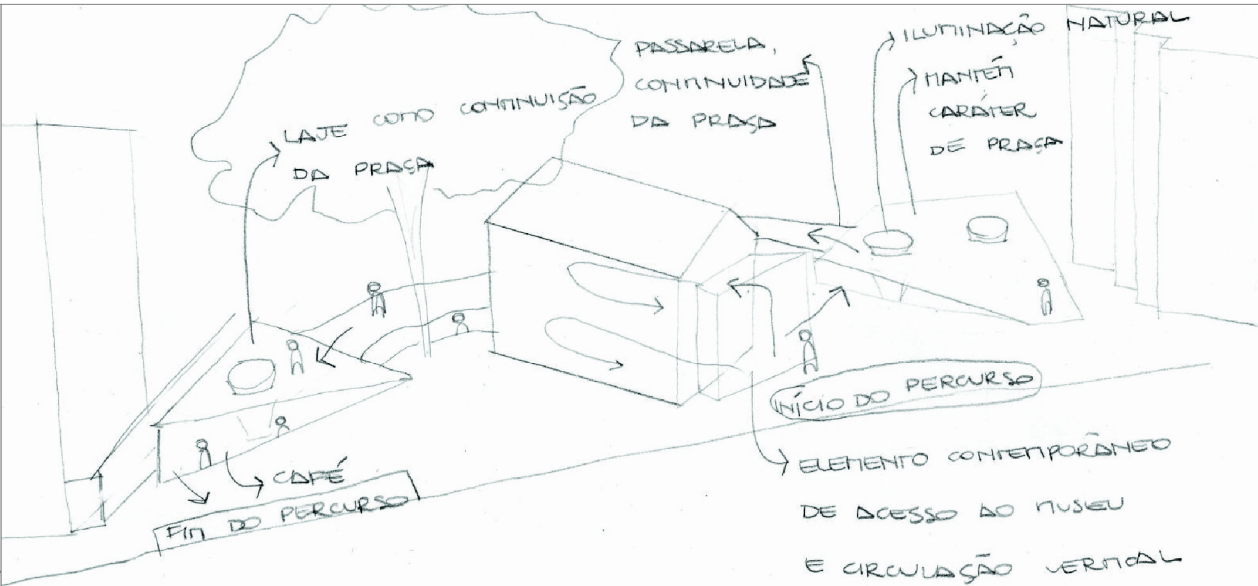 LAJE COMO CONTINUISÃO
DA PRAÇA
PASSARELA,
CONTINUIDADE
DA PRAÇA
ILUMINAÇÃO NATURAL
MANTÉM
CARÁTER
DE PRAÇA
INÍCIO DO PERCURSO
CAFÉ
FIM DO PERCURSO
ELEMENTO CONTEMPORÂNEO
DE ACESSO AO MUSEU
E CIRCULAÇÃO VERTICAL